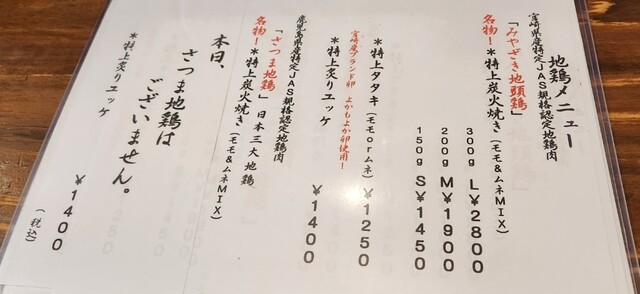 地鶏メニュー
宮崎県産特定JAS規格認定地鶏肉
「みやざき地頭鶏」
名物!*特上炭火焼き(モモ&ムネMIX)
300g L¥2800
200g M¥1900
150g S¥1450
*特上タタキ(モモorムネ)¥1250
宮崎産ブランド卵 よかもよか卵使用!
*特上炙りユッケ ¥1400
鹿児島県産特定JAS規格認定地鶏肉
「さつま地鶏」日本三大地鶏
名物!*特上炭火焼き(モモ&ムネMIX)
本日、
さつま地鶏は
ございません。
*特上炙りユッケ ¥1400
(税込)